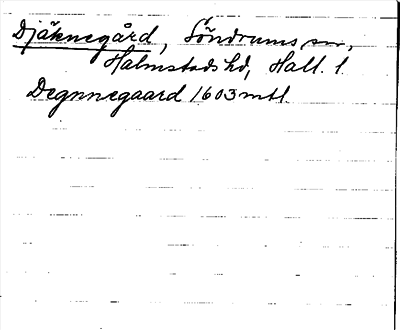 Djäknegård, Söndrums sn,
Halmstads hd, Hall. l.
Degnnegaard 1603 mtl.